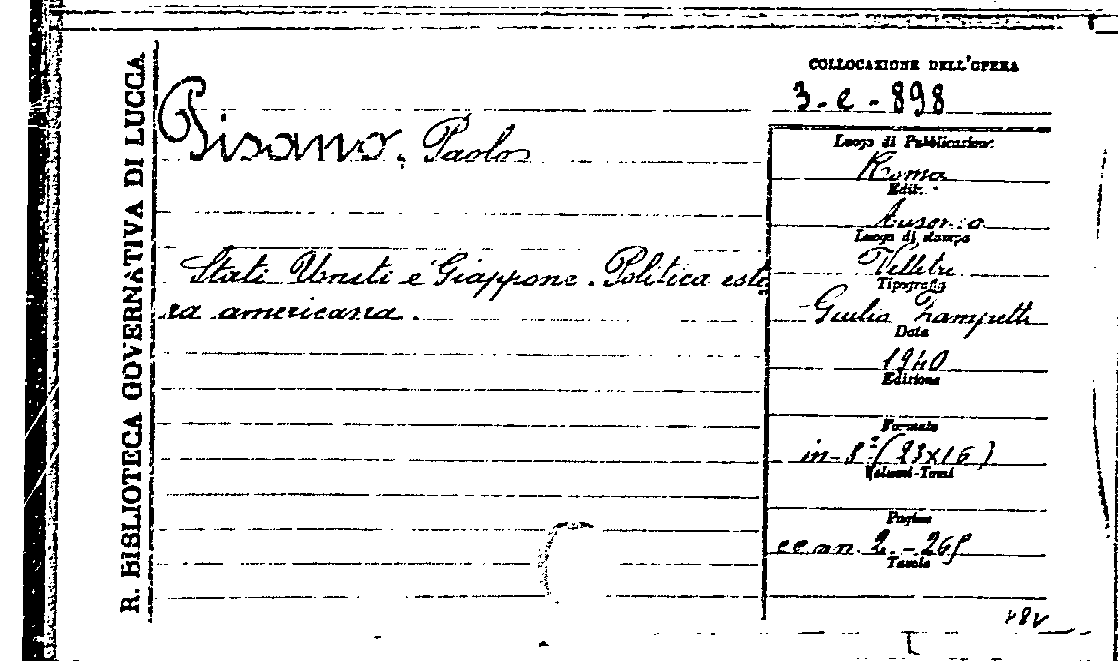 R. BIBLIOTECA GOVERNATIVA DI LUCCA
COLLOCAZIONE DELL'OPERA
3-e-898
Pisano, Paolo
Stati Uniti e Giappone. Politica este
ra americana.
Luogo di Pubblicazione
Roma
Edit.
Ausonia
Luogo di stampa
Velletri
Tipografia
Giulio Zampetti
Data
1940
Edizione
Formato
in-8° (23x16)
Volumi-Tomi
Pagine
cc nn. 2. - 265
Tavole